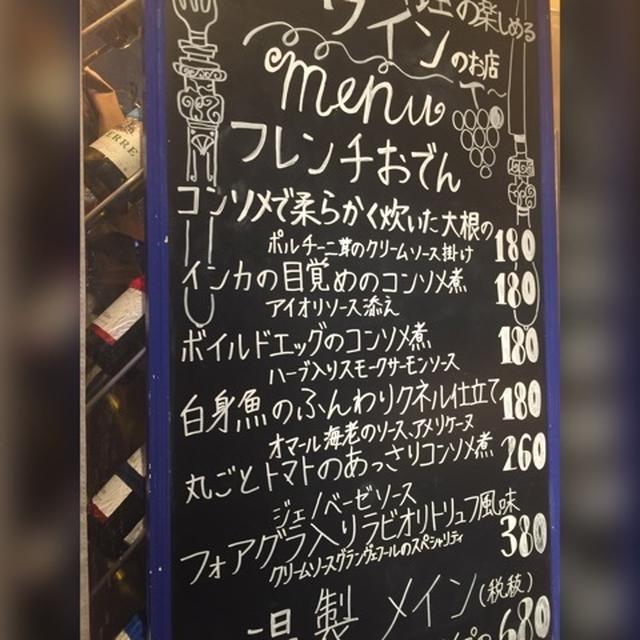 の楽しめる
ワインのお店
menu
フレンチおでん
コンソメで柔らかく炊いた大根の
ポルチーニ茸のクリームソース掛け 180
インカの目覚めのコンソメ煮 180
アイオリソース添え
ボイルドエッグのコンソメ煮 180
ハーブ入りスモークサーモンソース
白身魚のふんわりクネル仕立て 180
オマール海老のソース、アメリケーヌ
丸ごとトマトのあっさりコンソメ煮 260
ジェノベーゼソース
フォアグラ入りラビオリトリュフ風味 380
クリームソースグランヴェフールのスペシャリティ
製 メイン(税抜)
680